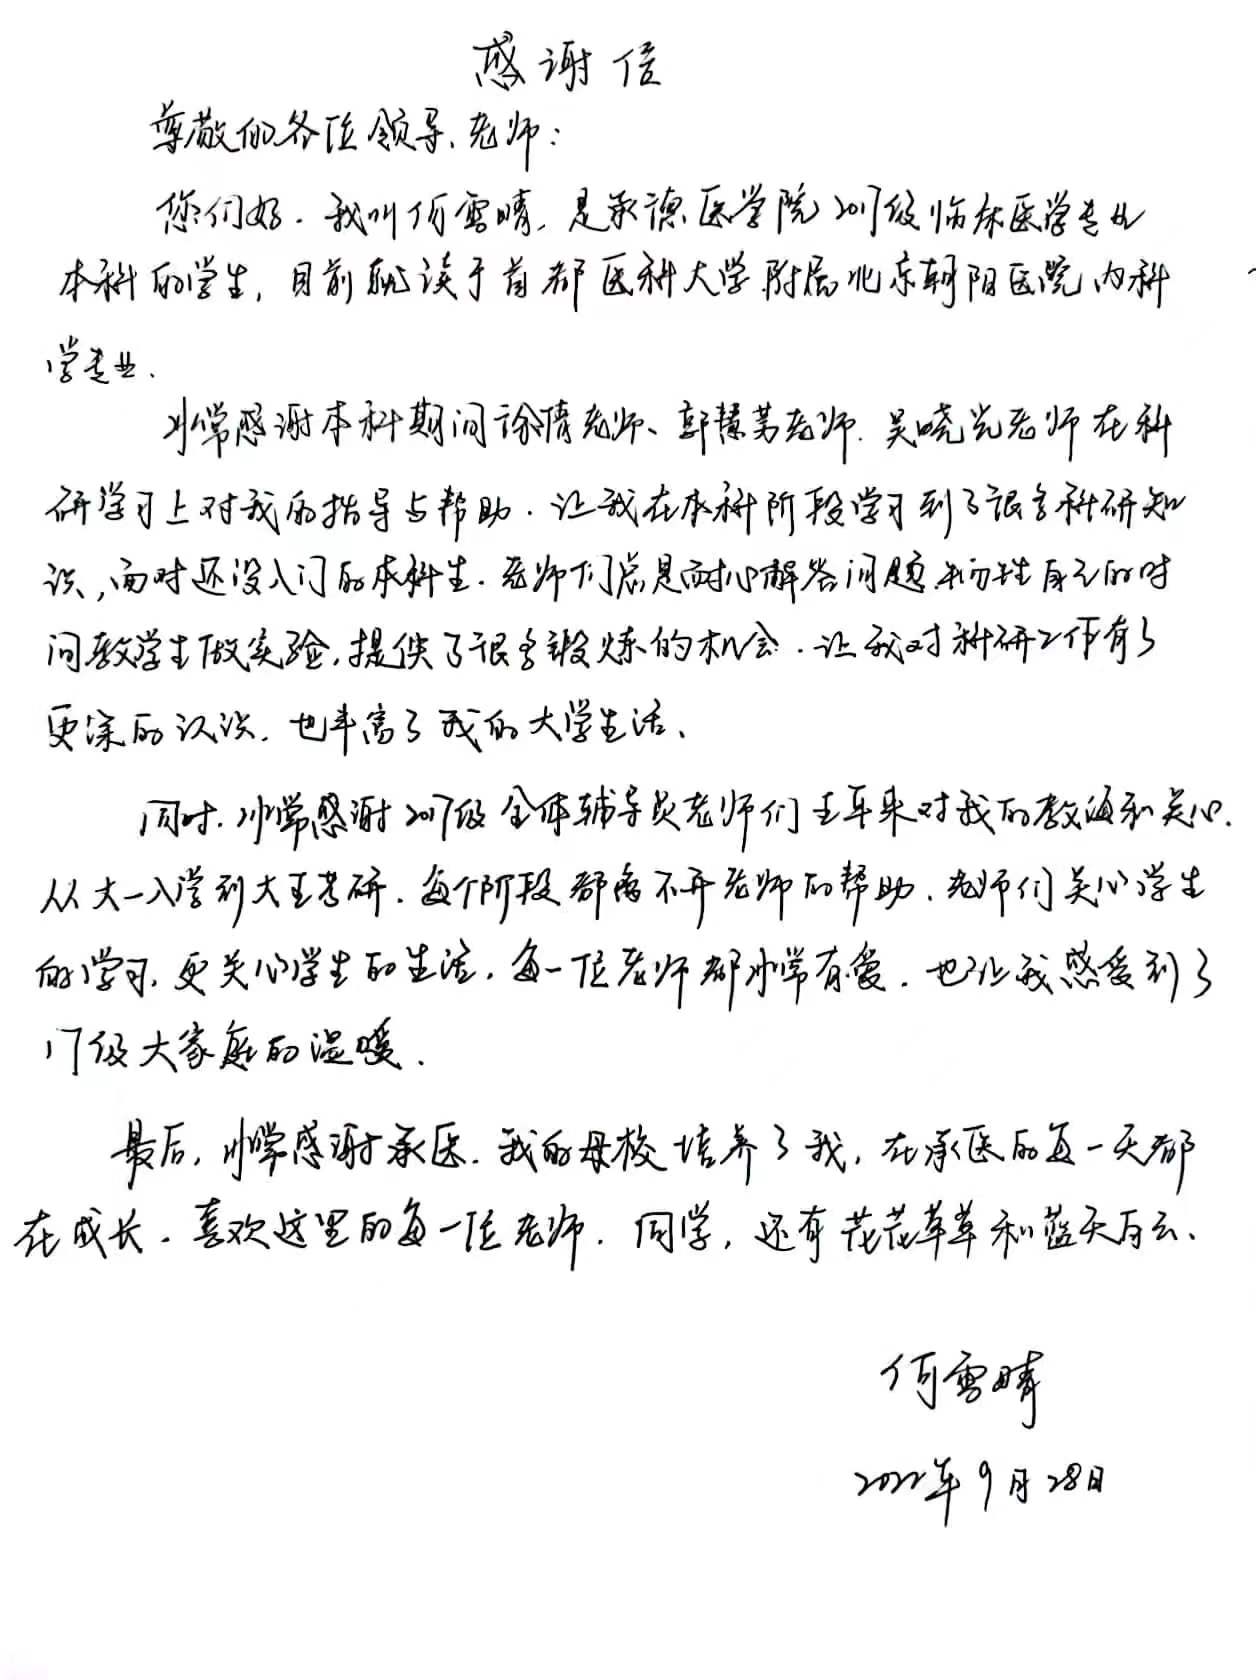 感谢信
尊敬的各位领导、老师：
您们好．我叫何雪晴，是承德医学院2017级临床医学专业
本科的学生，目前就读于首都医科大学附属北京朝阳医院内科
学专业．
非常感谢本科期间 倩老师、郭慧 老师．吴晓光老师在科
研学习上对我的指导与帮助．让我在本科阶段学习到了很多科研知
识，面对还没入门的本科生．老师们总是耐心解答问题 牺牲自己的时
间教学生做实验，提供了很多锻炼的机会．让我对科研工作有了
更深的认识．也丰富了我的大学生活、
同时．非常感谢2017级全体辅导员老师们五年来对我的教诲和关心．
从大一入学到大五考研．每个阶段都离不开老师的帮助．老师们关心学生
的学习，更关心学生的生活，每一位老师都非常有爱．也让我感受到了
17级大家庭的温暖．
最后，非常感谢承医．我的母校培养了我，在承医的每一天都
在成长．喜欢这里的每一位老师．同学，还有花花草草和蓝天白云、
何雪晴
2022年9月28日